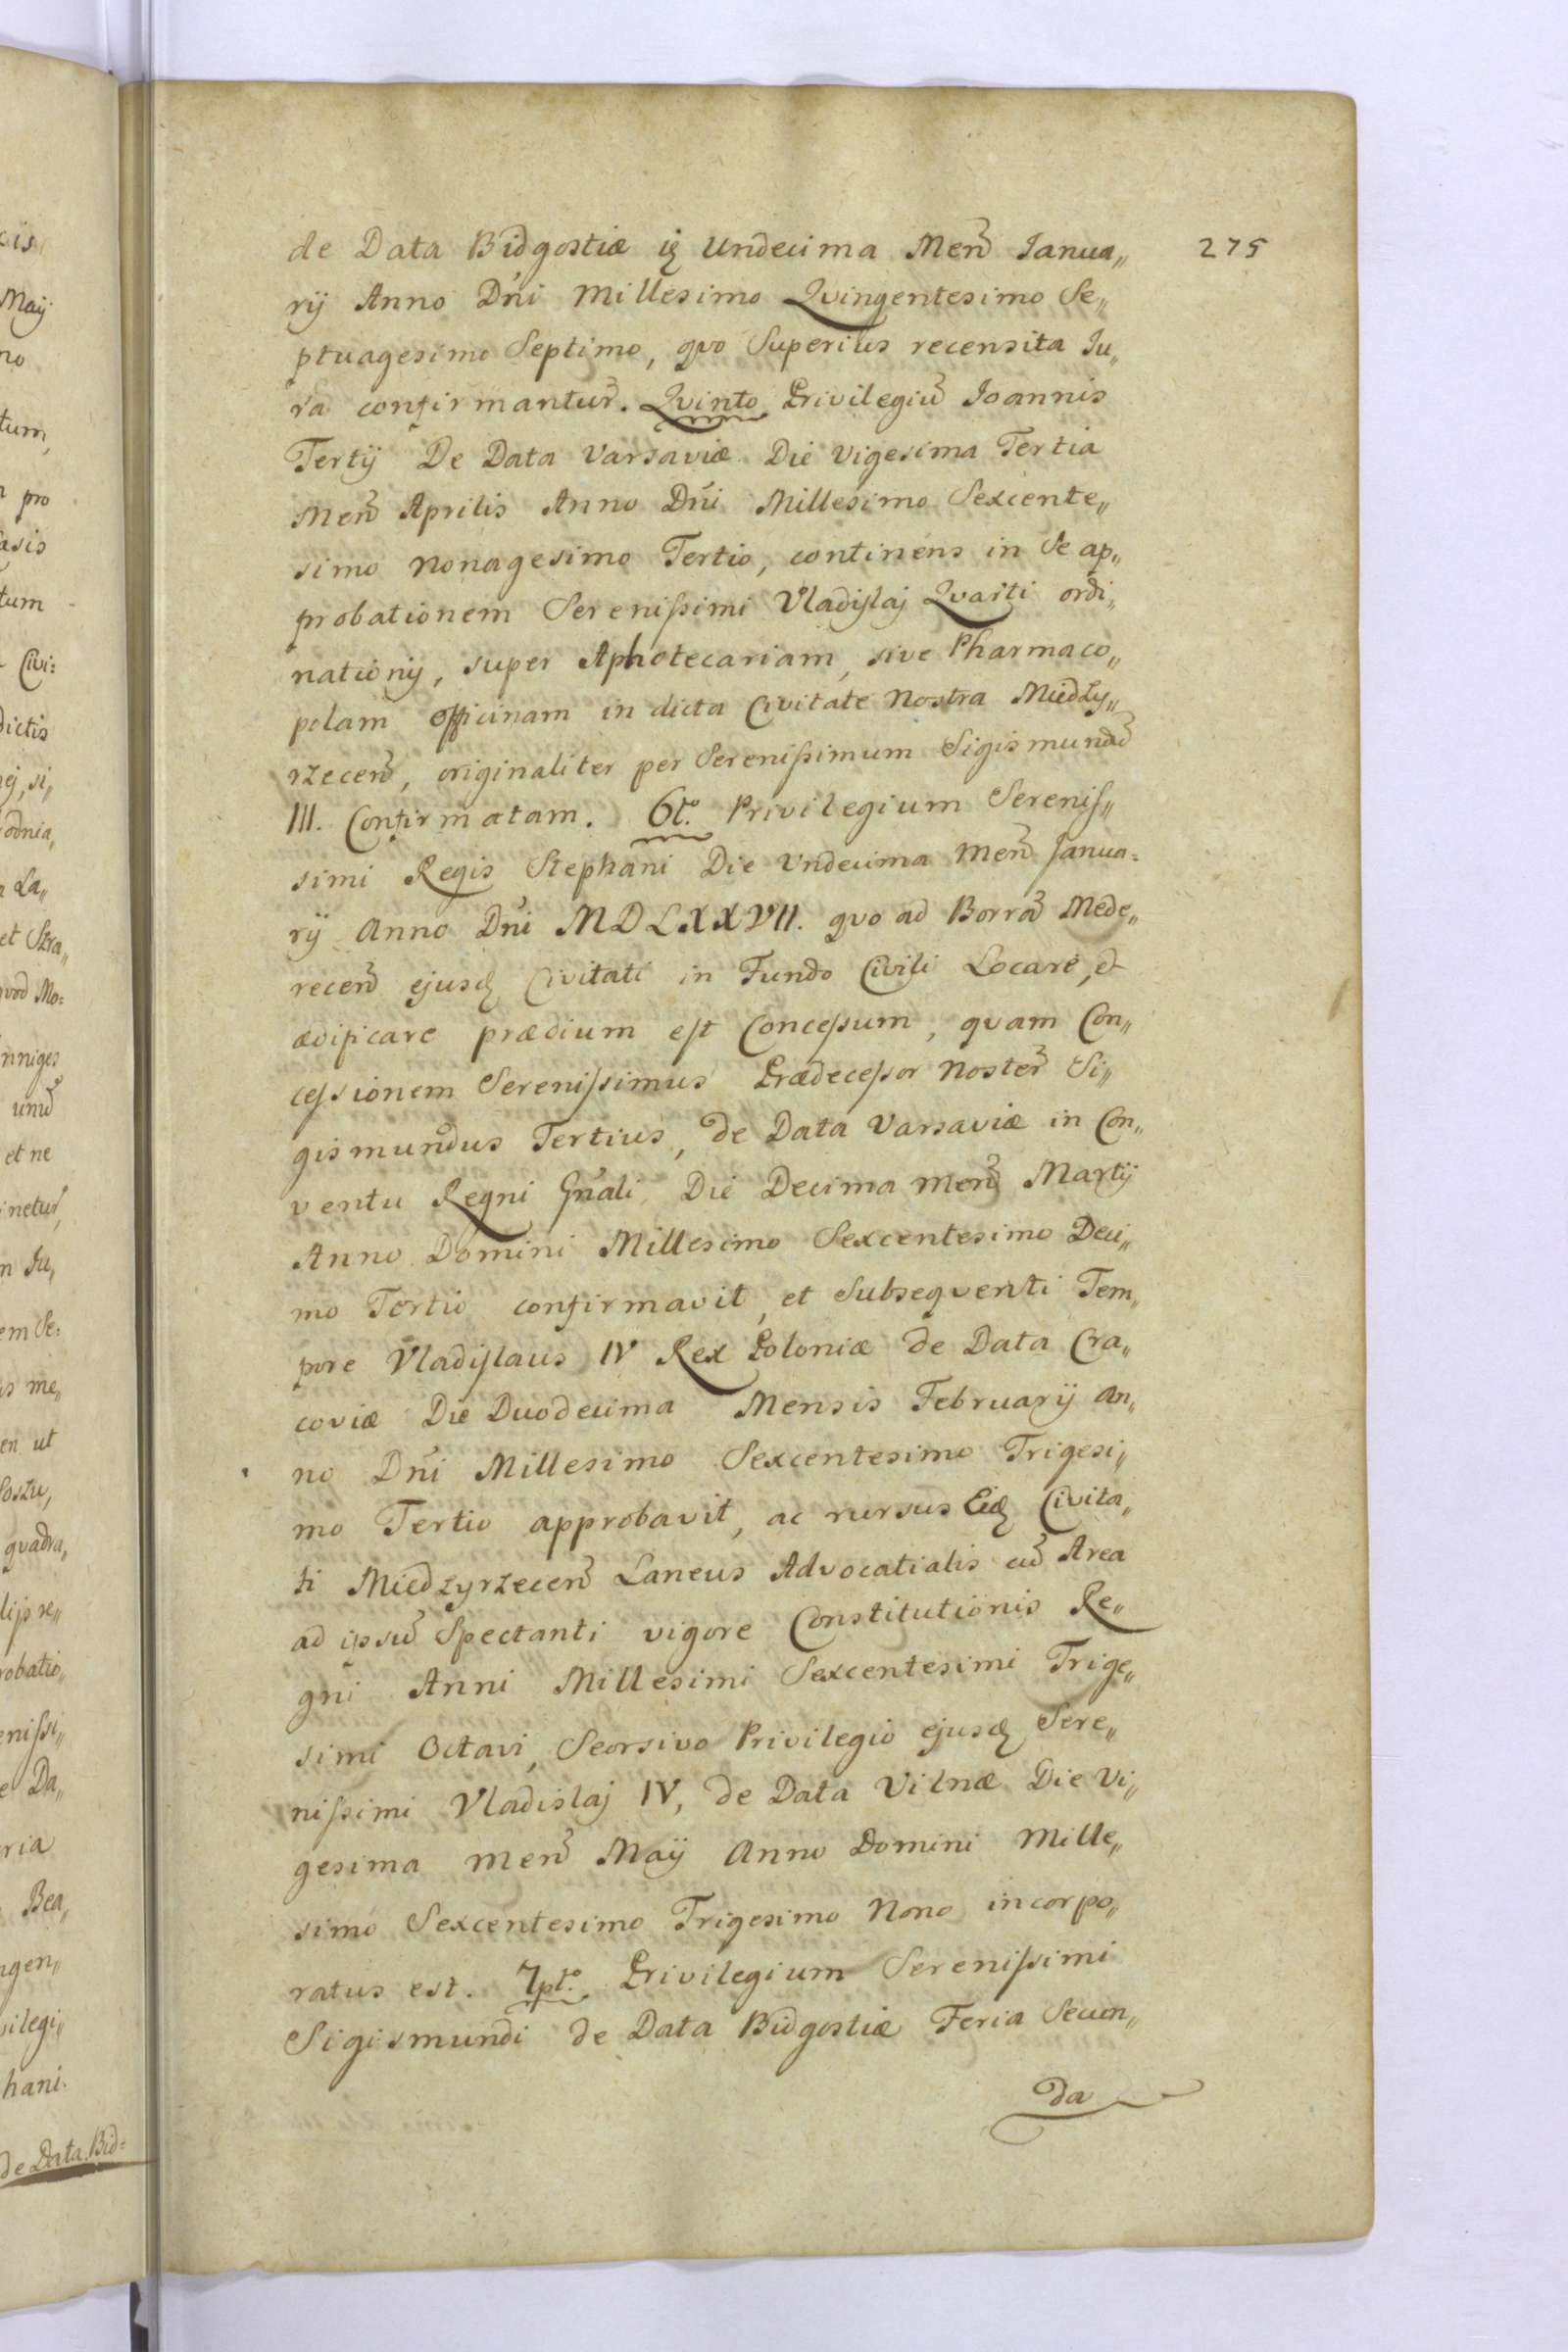 275
de Data Bidgostiæ iz Undecima Meñ Ianua„
rij Anno Dńi Millesimo Qvingentesimo Se„
ptuagesimo Septimo, qvo Superius recensita Iu„
ra confirmantur̃. Qvinto Privilegiũ Ioannis
Tertij De Data Varsaviæ Die Vigesima Tertia
Meñ Aprilis Anno Dńi Millesimo Sexcente„
simo Nonagesimo Tertio, continens in Se ap„
probationem Serenissimi Vladislaj Qvarti ordi„
nationij, super Aphotecariam, sive Pharmaco„
polam officinam in dicta Civitate Nostra Miedzy„
rzeceñ, originaliter per Serenissimum Sigismundũ
III. Confirmatam. 6to. Privilegium Serenis„
simi Regis Stephani Die Undecima Meñ Janua=
rij Anno Dńi MDLXXVII. qvo ad Borrã Mede„
receñ ejusq Civitati in Fundo Civili Locare, et
ædificare prædium est Concessum, qvam Con„
cessionem Serenissimus Prædecessor Noster̃ Si„
gismundus Tertius, de Data Varsaviæ in Con„
ventu Regni Gńali Die Decima Meñ Martij
Anno Domini Millesimo Sexcentesimo Deci„
mo Tertio confirmavit, et Subseqventi Tem„
pore Vladislaus IV Rex Poloniæ de Data Cra„
coviæ Die Duodecima Mensis Februarij An„
no Dńi Millesimo Sexcentesimo Trigesi„
mo Tertio approbavit, ac rursus Eidq Civita„
ti Miedzyrzeceñ Laneus Advocatialis cũ Area
ad ipsũ Spectanti vigore Constitutionis Re„
gni Anni Millesimi Sexcentesimi Trige„
simi Octavi, Seorsivo Privilegio ejusq Sere„
nissimi Vladislaj IV, de Data Vilnæ Die Vi„
gesima Meñ Maij Anno Domini Mille„
simo Sexcentesimo Trigesimo Nono incorpo„
ratus est. 7pto. Privilegium Serenissimi
Sigismundi de Data Bidgostiæ Feria Secun„
da